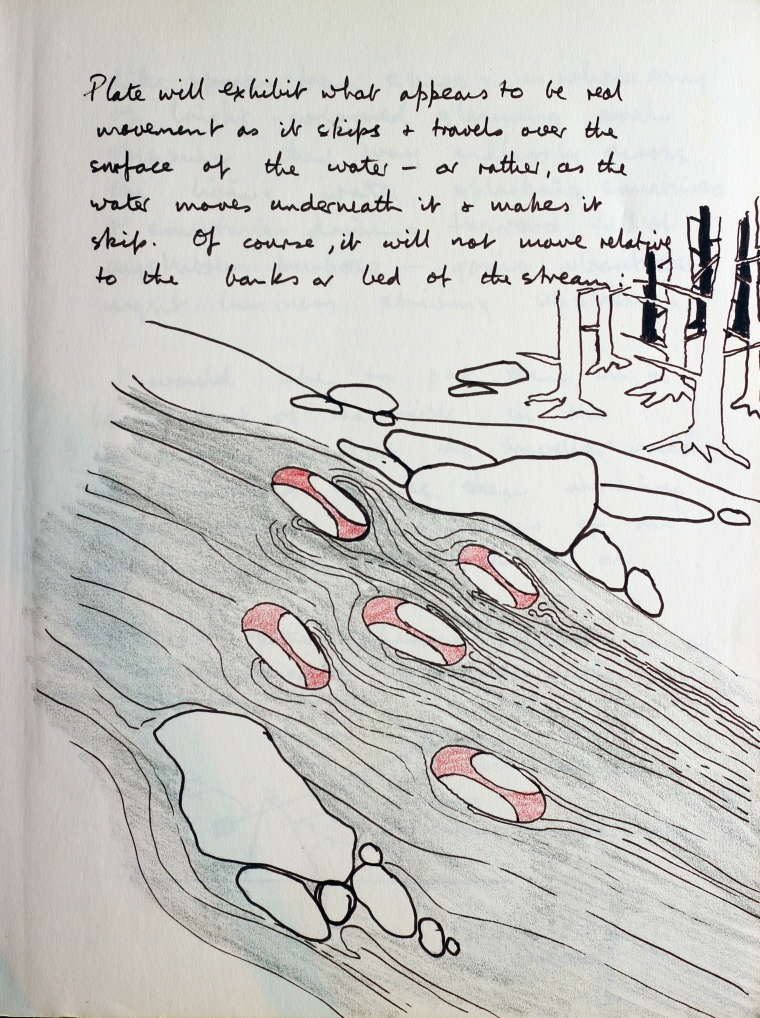 Plate will exhibit what appears to be real
movement as it skips & travels over the
surface of the water – or rather, as the
water moves underneath it & makes it
skip. Of course, it will not move relative
to the banks or bed of the stream.